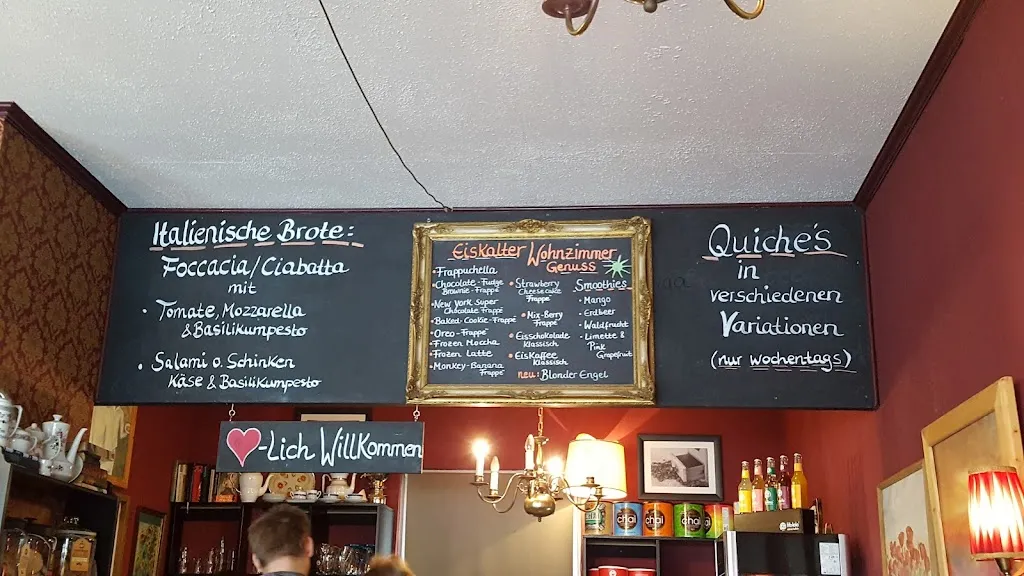 Italienische Brote:-
Foccacia/Ciabatta
mit
• Tomate, Mozzarella
& Basilikumpesto
• Salami o. Schinken
Käse & Basilikumpesto
Eiskalter Wohnzimmer
Genuss
• Frappuchella
• Chocolate-Fudge
Brownie-Frappé
• New York Super
Chocolate Frappé
• Baked-Cookie-Frappé
• Oreo-Frappé
• Frozen Moccha
• Frozen Latte
• Monkey-Banana
Frappé
• Strawberry
Cheesecake
Frappé
• Mix-Berry
Frappé
• Eisschokolade
Klassisch
• Eiskaffee
Klassisch
neu: Blonder Engel
Smoothies
- Mango
- Erdbeer
- Waldfrucht
- Limette &
Pink
Grapefruit
Quiche's
in
verschiedenen
Variationen
(nur wochentags)
-Lich Willkommen
chai
chai
chai